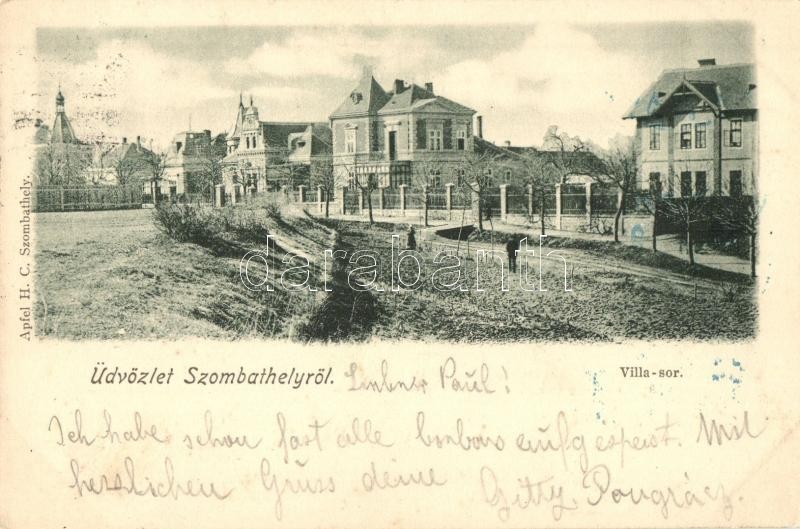 darabanth
Apfel H. C. Szombathely.
Üdvözlet Szombathelyről. Lieber Paul!
Villa-sor.
Ich habe schon fast alle bonbons aufgespeist. Mit
herzlichen Gruss deine Gitty Pongrácz.